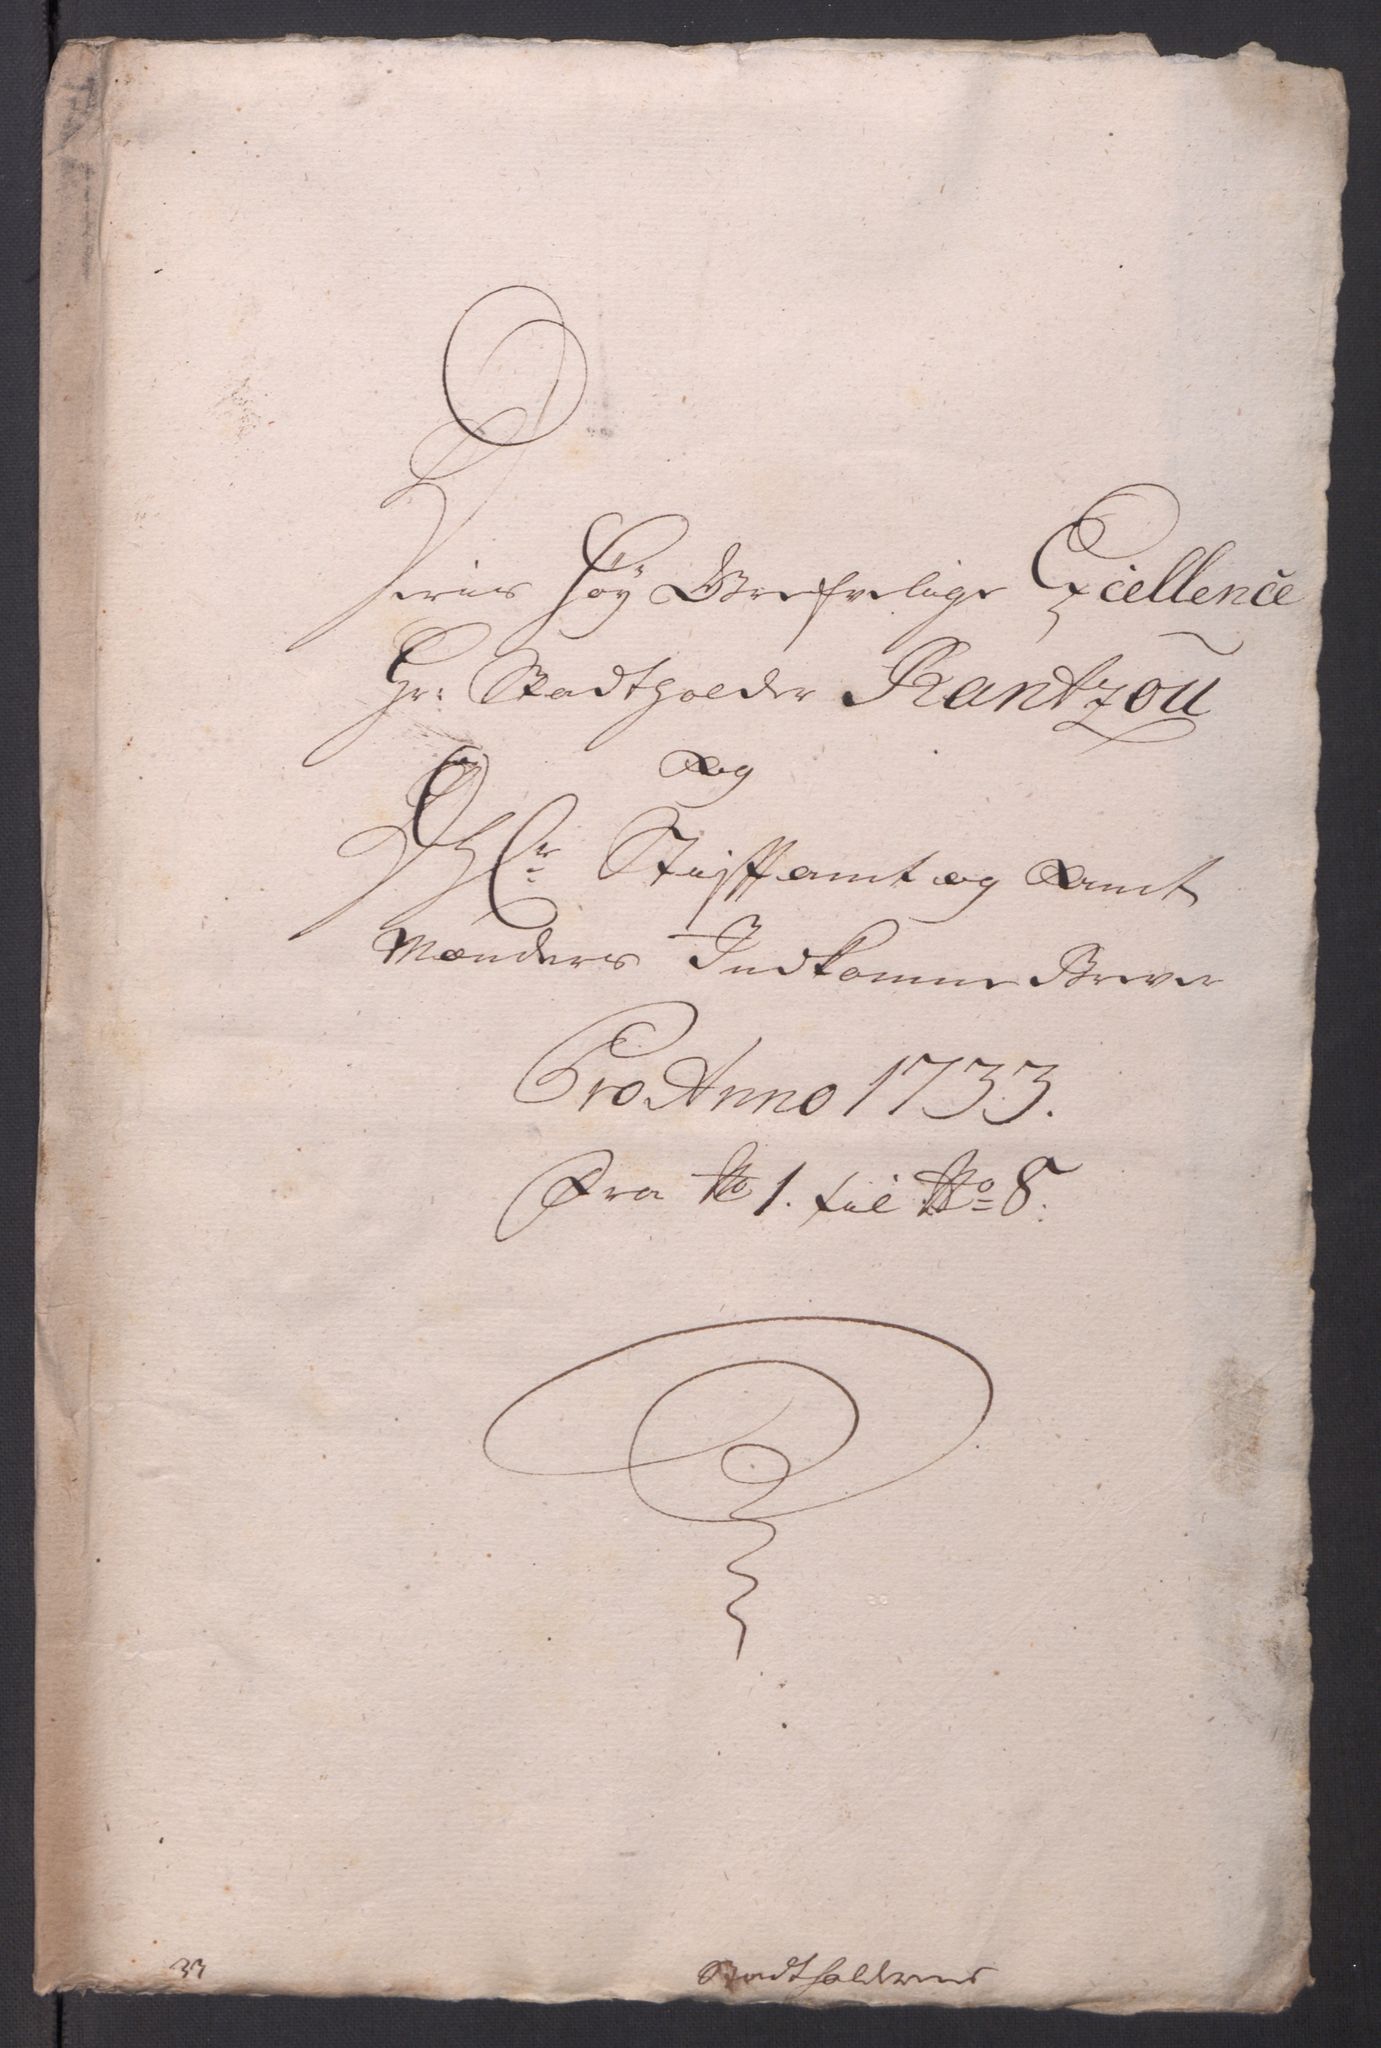 Hans Høy Grefvelige Excellence
Hr: Stadtholder Rantzou
og
Hr Stifftamt og Amt
Mænders Indkomne Brever
Pro Anno 1733.
Fra No 1. til No 8.
33
Stadtholderens